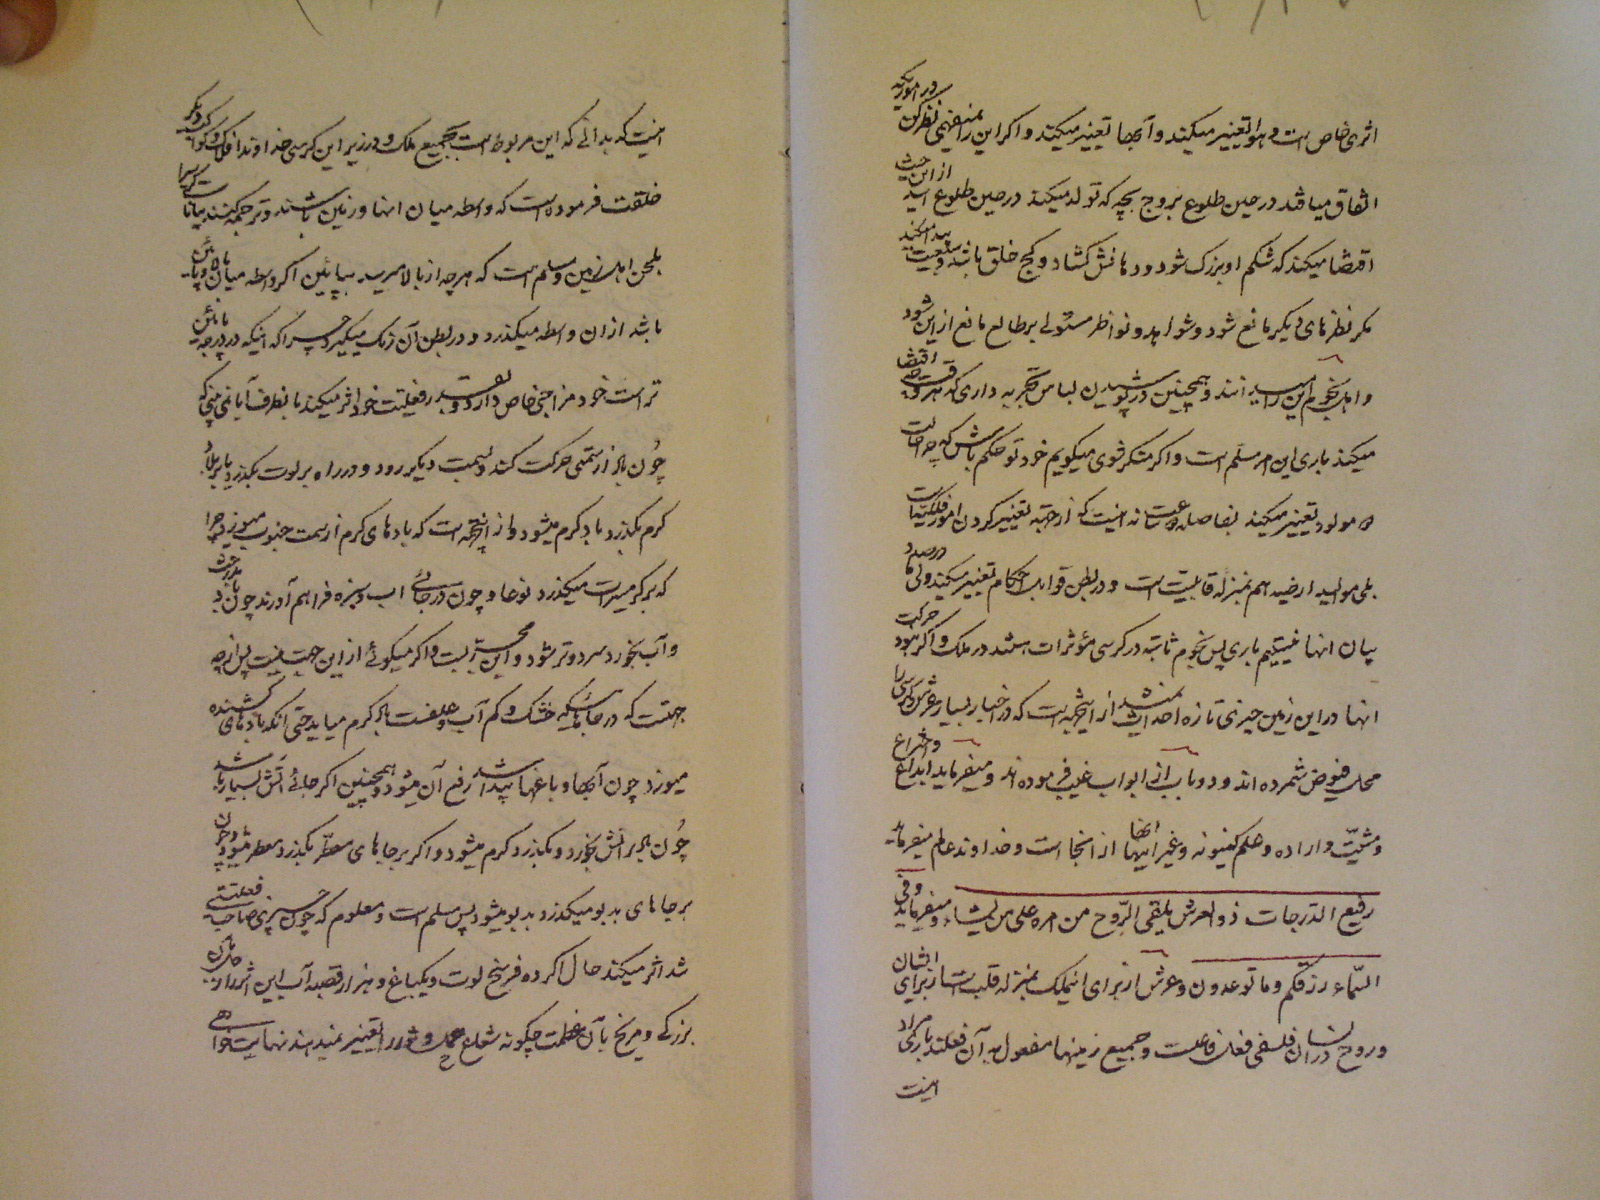 اثری خاص است و هوا تغییر میکند و آبها تغییر میکند و اگر این را نمیفهمی نظر کن در اموریکه
اتفاق میافتد در حین طلوع بروج بچه که تولد میکند در حین طلوع اسد از این حیث
اقتضا میکند که شکم او بزرک شود و دهانش کشاد و کج خلق باشد و طبیعت پیدا میکند
مگر نظرهای دیگر مانع شود و شواهد و نواظر مستولی بر طالع مانع از این شود
و اهل نجوم این را میدانند و همچنین در پوشیدن لباس تجربه داری که هر وقت اقتضا
میکند باری این امر مسلم است و اگر منکر قوی میکویم خود تو حکم باش که چرا حالت
مولود تغییر میکند بفاصله ساعت نه اینست که از جهة تغییر کردن امور فلکیه است
بلی موالید ارضیه هم بمنزله قابلیت است و در بطن قوابل احکام تغییر میکند ولی ما در صدد
بیان انها نیستیم باری پس نجوم ثابته در کرسی مؤثرات هستند در ملک و اگر نبود حرکت
انها در این زمین چیزی تازه احداث نمیشد از اینجهة است که در اخبار بسیار عرش و کرسی را
محل فیوض شمرده اند و دو باب از ابواب غیب فرموده اند و میفرماید ابداع و اختراع
و مشیّت و اراده و علم کینونه و غیر اینها از انجا است و خداوند عالم میفرماید
رفیع الدّرجات ذو العرش یلقی الرّوح من امره علی من یشاء و میفرماید و فی
السّماء رزقکم و ما توعدون و عرش از برای این ملک بمنزله قلب است از برای انسان
و روح در ان فلسفی فعل فاعلست و جمیع زمینها مفعول به آن فعلند باری مراد
اینست
اینست که بدانی که این مربوط است بجمیع ملک و در زیر این کرسی خداوند افلاک و کواکب دیگر
خلقت فرموده است که واسطه میان انها و زمین باشند و ترجمه کنند بیانات کرسی را
بلحن اهل زمین و مسلم است که هرچه از بالا میرسد بپائین اگر واسطه میان بالا و پائین
باشد از ان واسطه میکذرد و در بطن آن رنک میکیرد چرا که اینکه در درجه پائین
تر است خود مزاجی خاص دارد و بقدر فعلیت خود اثر میکند با نطرف آیا نمی بینی که
چون باد از سمتی حرکت کند و بسمت دیکر رود و در راه بر لوت بکذرد یا بر بلاد
کرم بکذرد باد کرم میشود و از اینجهة است که بادهای کرم از سمت جنوب میوزد چرا
که بر کرمسیرات میکذرد نوعا و چون در جائی اب و سبزه فراهم آورند چون باد بدرخت
و آب بخورد سرد و تر شود و این محسوس است و اگر میکوئی از این جهت نیست پس از چه
جهتست که در جاهائیکه خشک و کم آب و علفست باد کرم میاید حتی آنکه بادهای کشنده
میوزد چون آبها و باغها پیدا شد رفع آن میشود و همچنین اکر جائی آتش بسیار باشد
چون باد بر اتش بخورد و بکذرد کرم میشود و اکر بر جاهای معطّر بکذرد معطر میشود و چون
بر جاهای بدبو میکذرد بدبو میشود پس مسلم است و معلوم که چون چیزی صاحب فعلیتی
شد اثر میکند حال اکر ده فرسخ لوت و یکباغ و هزار قصبه آب این اثر دارد
بزرکی و مریخ با آن عظمت چکونه شعاع شمس و قمر را تغییر نمیدهند نهایت خواهی